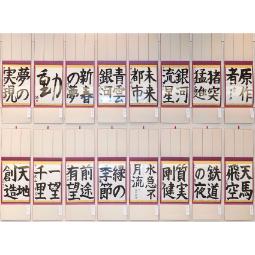 原作者
猪突猛進
銀河流星
未来都市
青雲銀河
新春の夢
動
夢の実現
天馬飛空
鉄道の夜
質実剛健
水急不流月
緑の季節
前途有望
一望千里
天地創造